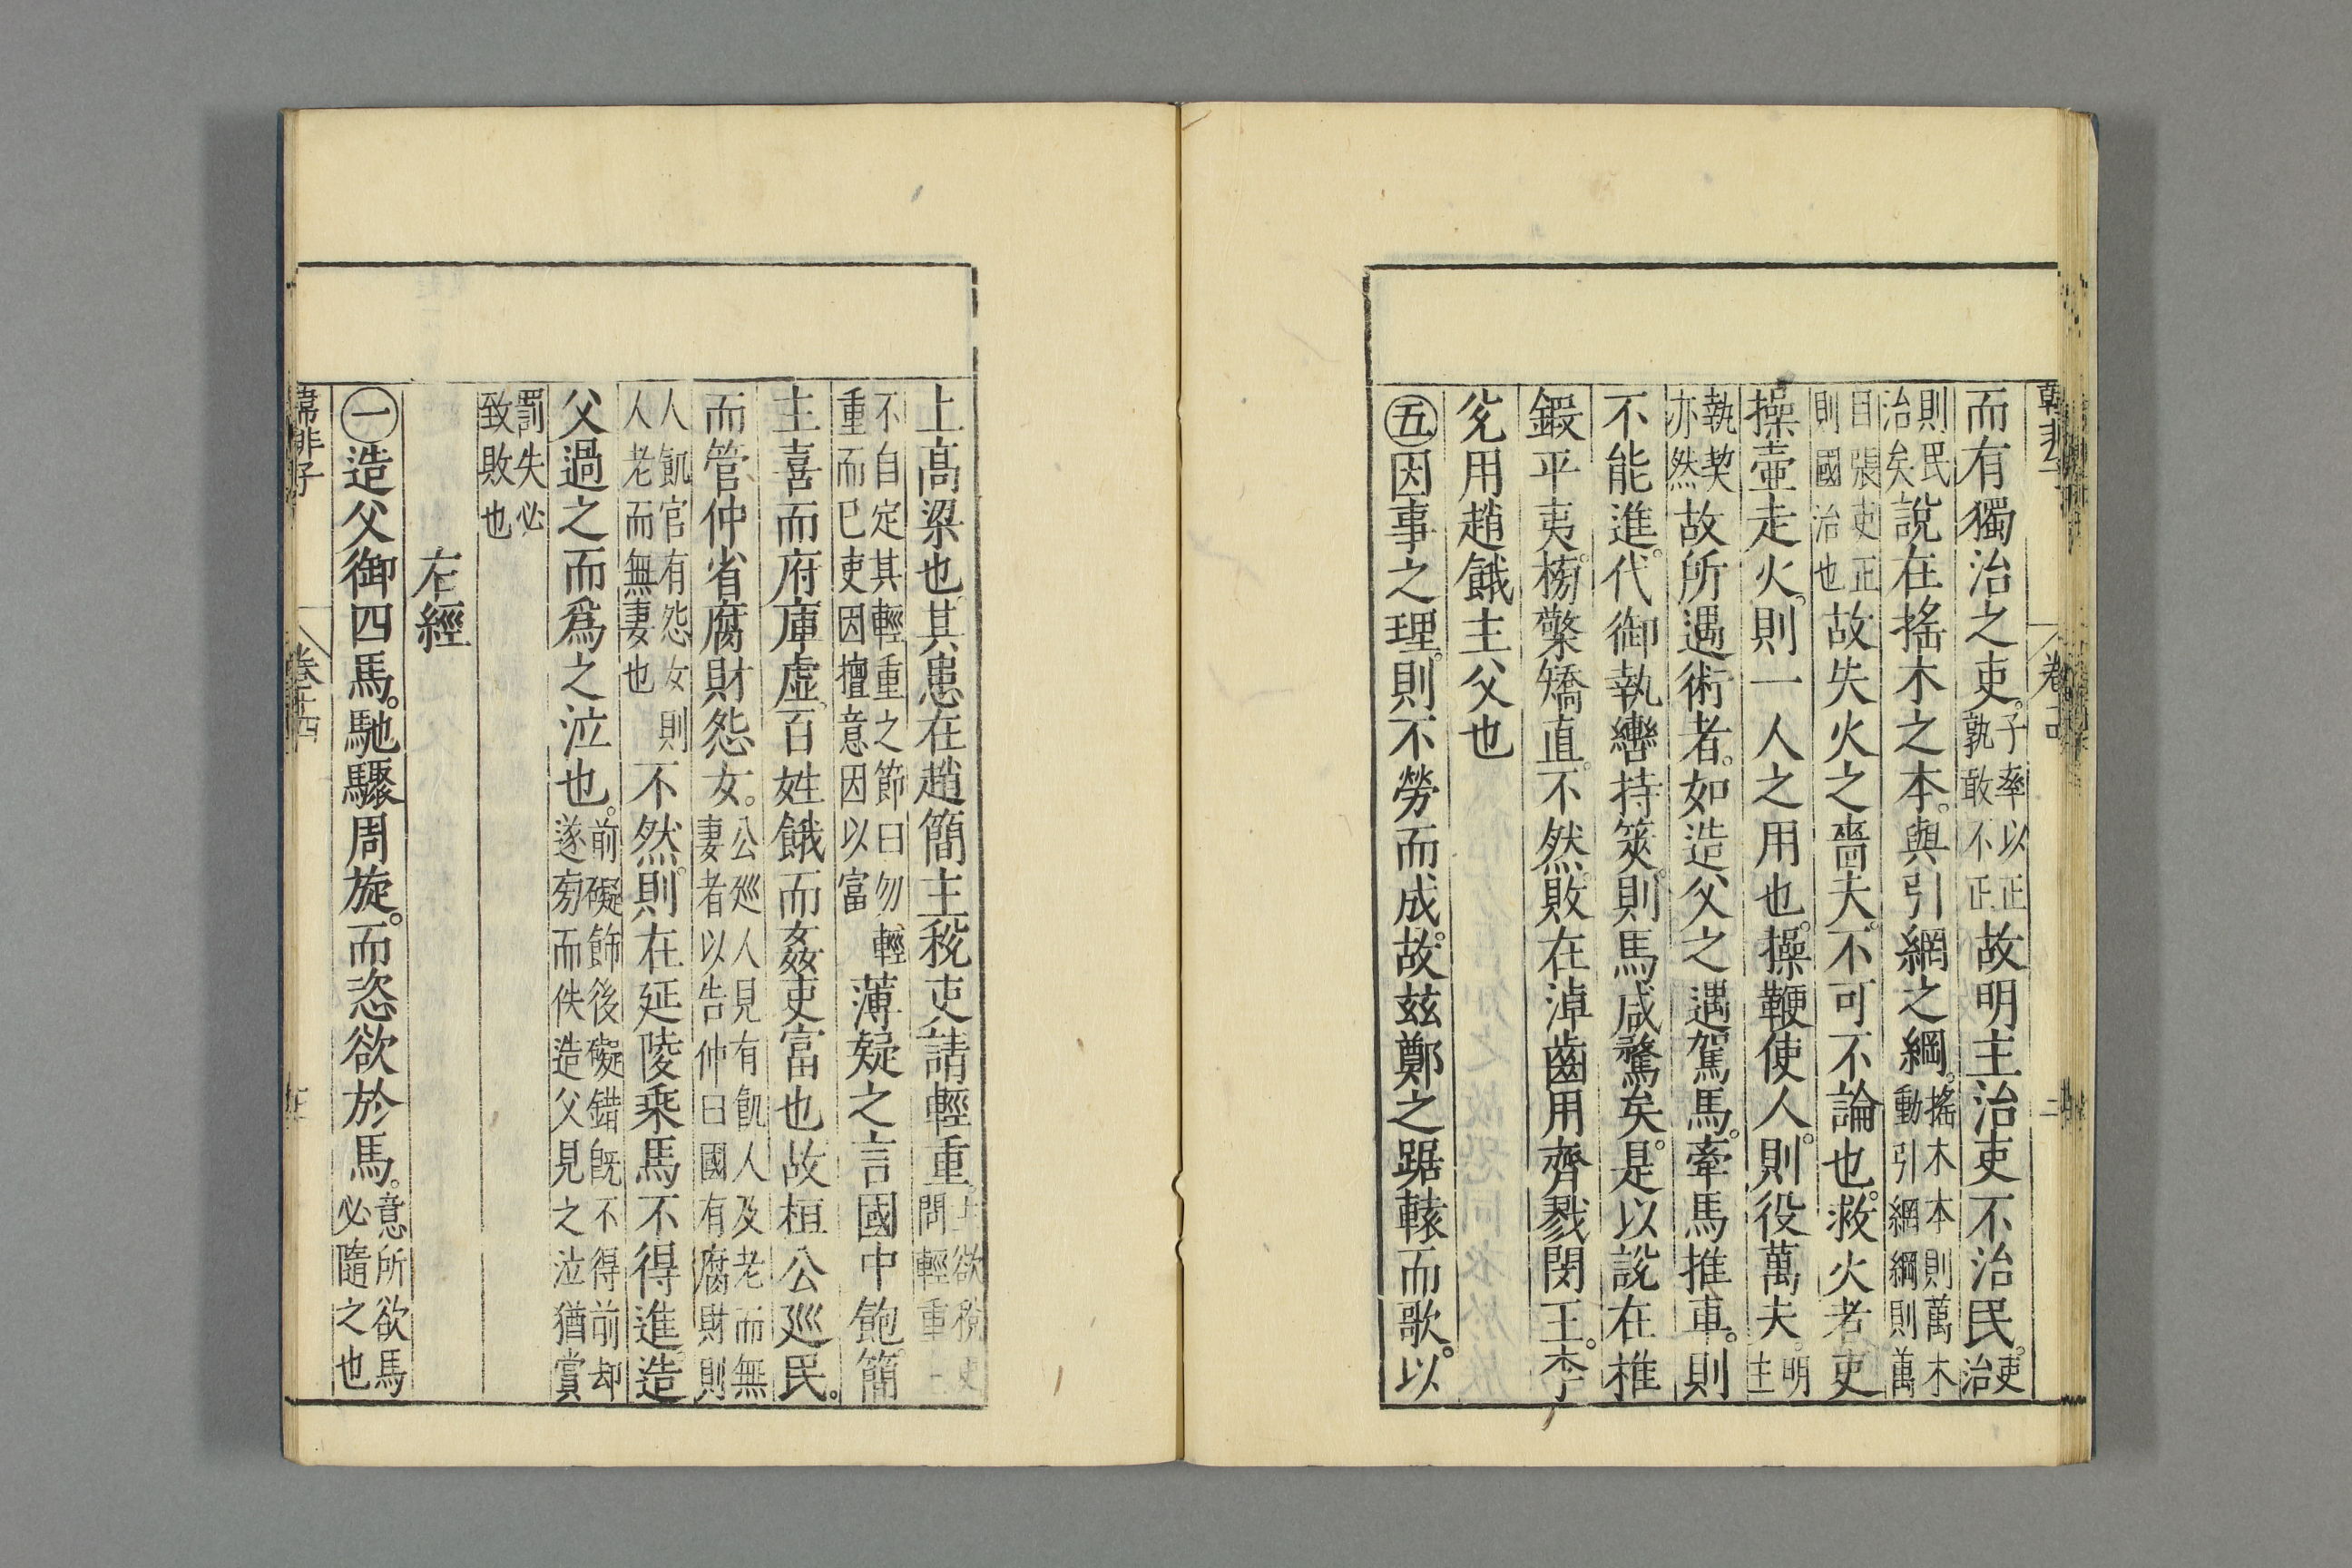 而有獨治之吏。子率以正孰敢不正故明主治吏不治民。吏治
則民治矣說在搖木之本。與引網之綱。搖木本則萬木動引網綱則萬
目張吏正則國治也故失火之嗇夫。不可不論也。救火者。吏
操壷走火。則一人之用也。操鞭使人。則役萬夫。明主
執契亦然故所遇術者。如造父之遇駕馬。牽馬推車。則
不能進。代御執轡持筴。則馬咸驁矣。是以說在椎
鍜平夷。榜檠矯直。不然。敗在淖齒用齊戮閔王。李
兊用趙餓主父也
五因事之理。則不勞而成。故茲鄭之踞轅而歌。以
上高梁也。其患在趙簡主稅吏請輕重。主欲稅吏問輕重主
不自定其輕重之節曰勿輕重而已吏因擅意因以富薄疑之言國中飽。簡
主喜而府庫虛。百姓餓而姦吏富也故桓公廵民。
而管仲省腐財怨女。公廵人見有飢人及老而無妻者以告仲曰國有腐財則
人飢官有怨女則人老而無妻也不然。則在延陵乘馬不得進造
父過之而爲之泣也。前礙飾後礙錯旣不得前却遂旁而佚造父見之泣猶賞
罰失必致敗也
右經
一造父御四馬。馳驟周旋。而恣欲於馬。意所欲馬必隨之也
韓非子 卷十四